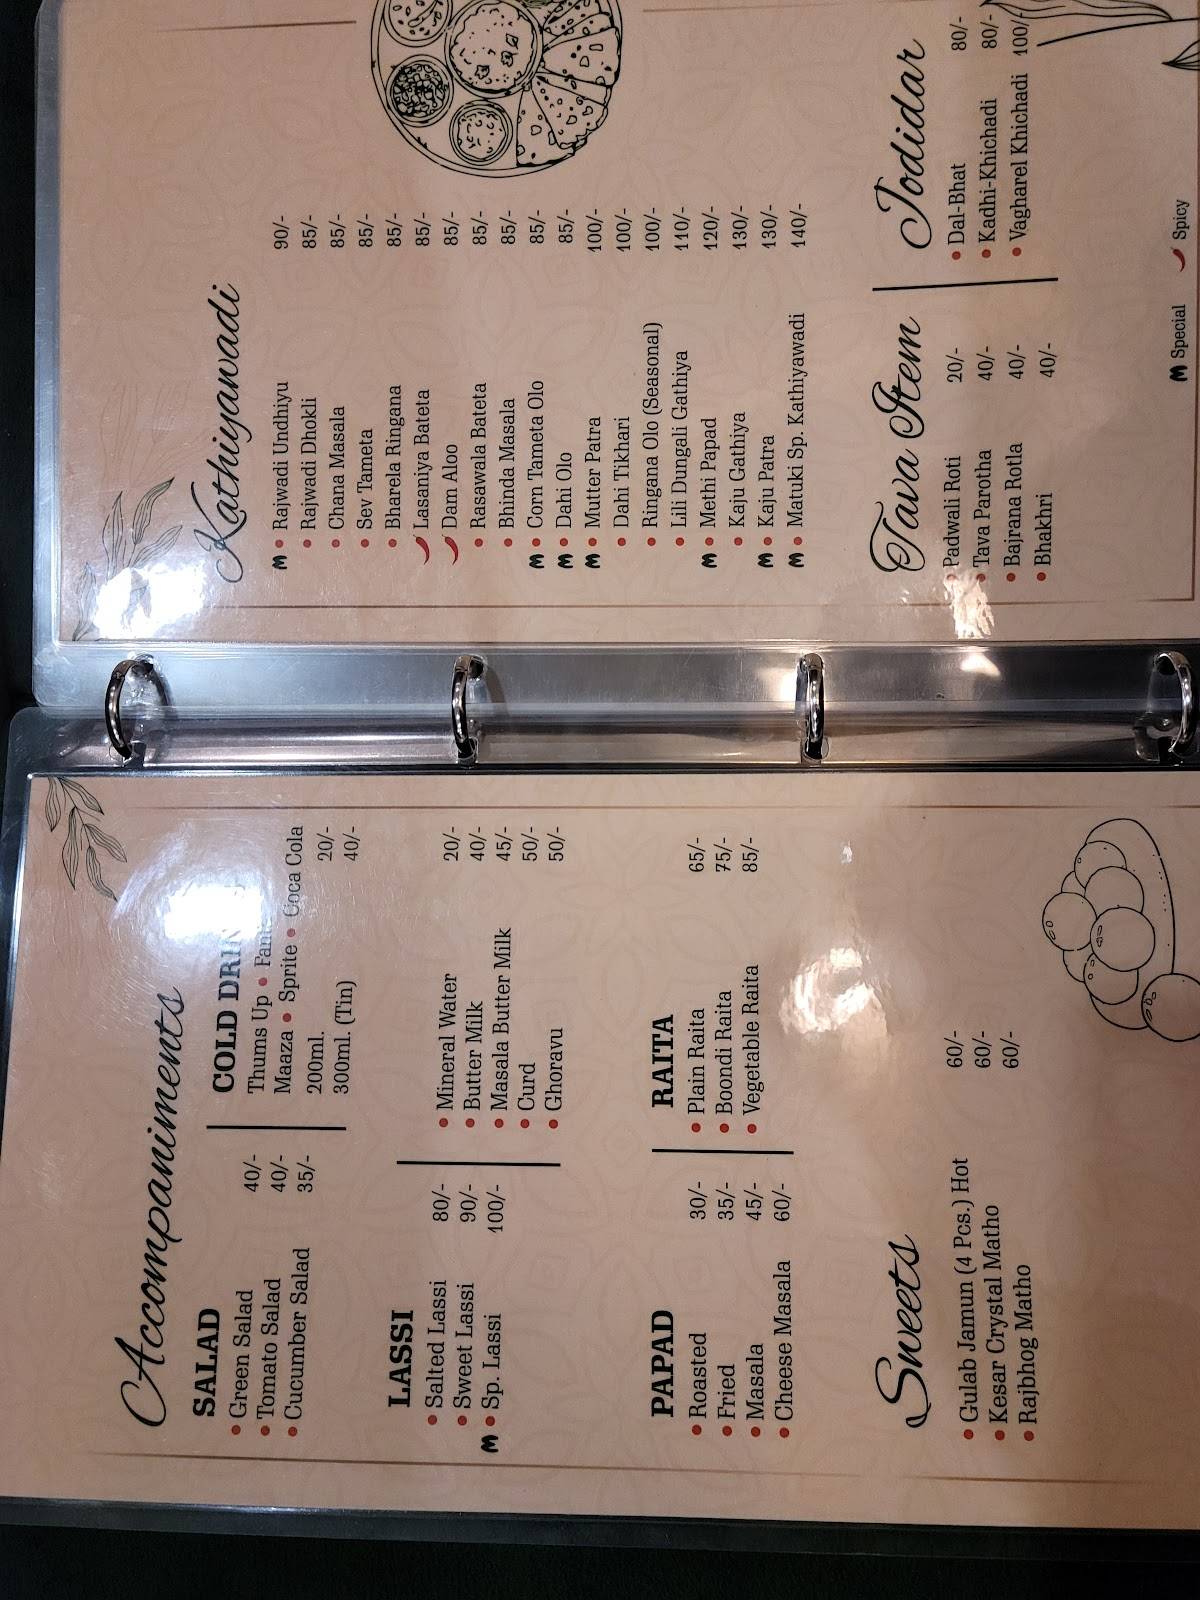 Accompaniments
SALAD
• Green Salad 40/-
• Tomato Salad 40/-
• Cucumber Salad 35/-
COLD
Thums Up •
Maaza • Sprite • Coca Cola
200ml. 20/-
300ml. (Tin) 40/-
LASSI
• Salted Lassi 80/-
• Sweet Lassi 90/-
M • Sp. Lassi 100/-
• Mineral Water 20/-
• Butter Milk 40/-
• Masala Butter Milk 45/-
• Curd 50/-
• Ghoravu 50/-
PAPAD
• Roasted 30/-
• Fried 35/-
• Masala 45/-
• Cheese Masala 60/-
RAITA
• Plain Raita 65/-
• Boondi Raita 75/-
• Vegetable Raita 85/-
Sweets
• Gulab Jamun (4 Pcs.) Hot 60/-
• Kesar Crystal Matho 60/-
• Rajbhog Matho 60/-
Kathiyawadi
M • Rajwadi Undhiyu 90/-
• Rajwadi Dhokli 85/-
• Chana Masala 85/-
• Sev Tameta 85/-
• Bharela Ringana 85/-
• Lasaniya Bateta 85/-
• Dam Aloo 85/-
• Rasawala Bateta 85/-
• Bhinda Masala 85/-
M • Corn Tameta Olo 85/-
M • Dahi Olo 85/-
M • Mutter Patra 100/-
• Dahi Tikhari 100/-
• Ringana Olo (Seasonal) 100/-
• Lili Dungali Gathiya 110/-
M • Methi Papad 120/-
• Kaju Gathiya 130/-
M • Kaju Patra 130/-
M • Matuki Sp. Kathiyawadi 140/-
Tava Item
• Padwali Roti 20/-
• Tava Parotha 40/-
• Bajrana Rotla 40/-
• Bhakhri 40/-
Jodidar
• Dal-Bhat 80/-
• Kadhi-Khichadi 80/-
• Vagharel Khichadi 100/-
M Special Spicy